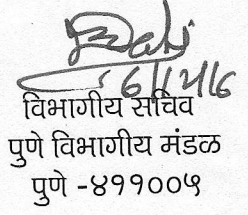 विभागीय सचिव
पुणे विभागीय मंडळ
पुणे -४११००५